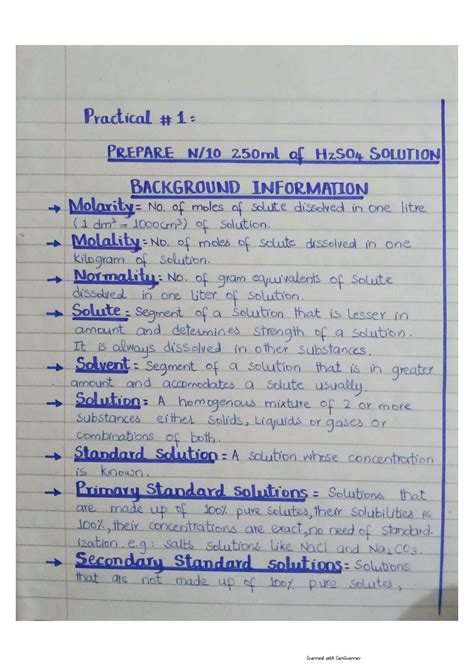 Practical # 1:
PREPARE N/10 250ml of H2SO4 SOLUTION
BACKGROUND INFORMATION
→ Molarity = No. of moles of solute dissolved in one litre
(1 dm³ = 1000cm³) of solution.
→ Molality = No. of moles of solute dissolved in one
kilogram of solution.
→ Normality = No. of gram equivalents of solute
dissolved in one liter of solution.
→ Solute = Segment of a solution that is lesser in
amount and determines strength of a solution.
It is always dissolved in other substances.
→ Solvent = Segment of a solution that is in greater
amount and accomodates a solute usually.
→ Solution = A homogenous mixture of 2 or more
substances either solids, liquids or gases or
combinations of both.
→ Standard Solution = A solution whose concentration
is known.
→ Primary Standard Solutions = Solutions that
are made up of 100% pure solutes, their solubilities is
100%, their concentrations are exact, no need of standard-
ization. e.g: salts solutions like NaCl and Na2CO3.
→ Secondary Standard solutions = Solutions
that are not made up of 100% pure solutes,
Scanned with CamScanner